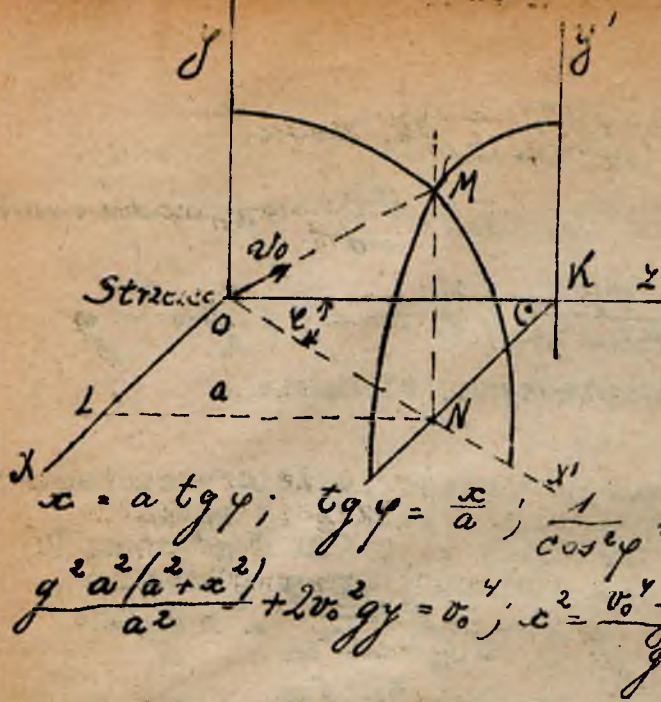 y y'
M
v₀
K z
Strzelec
O φ C
L a N
X x'
x = a tg φ; tg φ = x/a; 1/cos²φ
g²a²(a²+x²)/a² + 2v₀²gy = v₀⁴; x² = v₀⁴ - / g